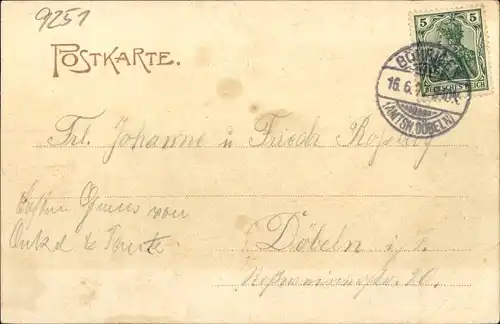 9251
POSTKARTE.
5 5
DEUTSCHES REICH
16.6.
(AMTSH. DÖBELN)
Frl. Johanne u Friedch
Besten Gruss von
Onkel & Tante.
Döbeln i/s.